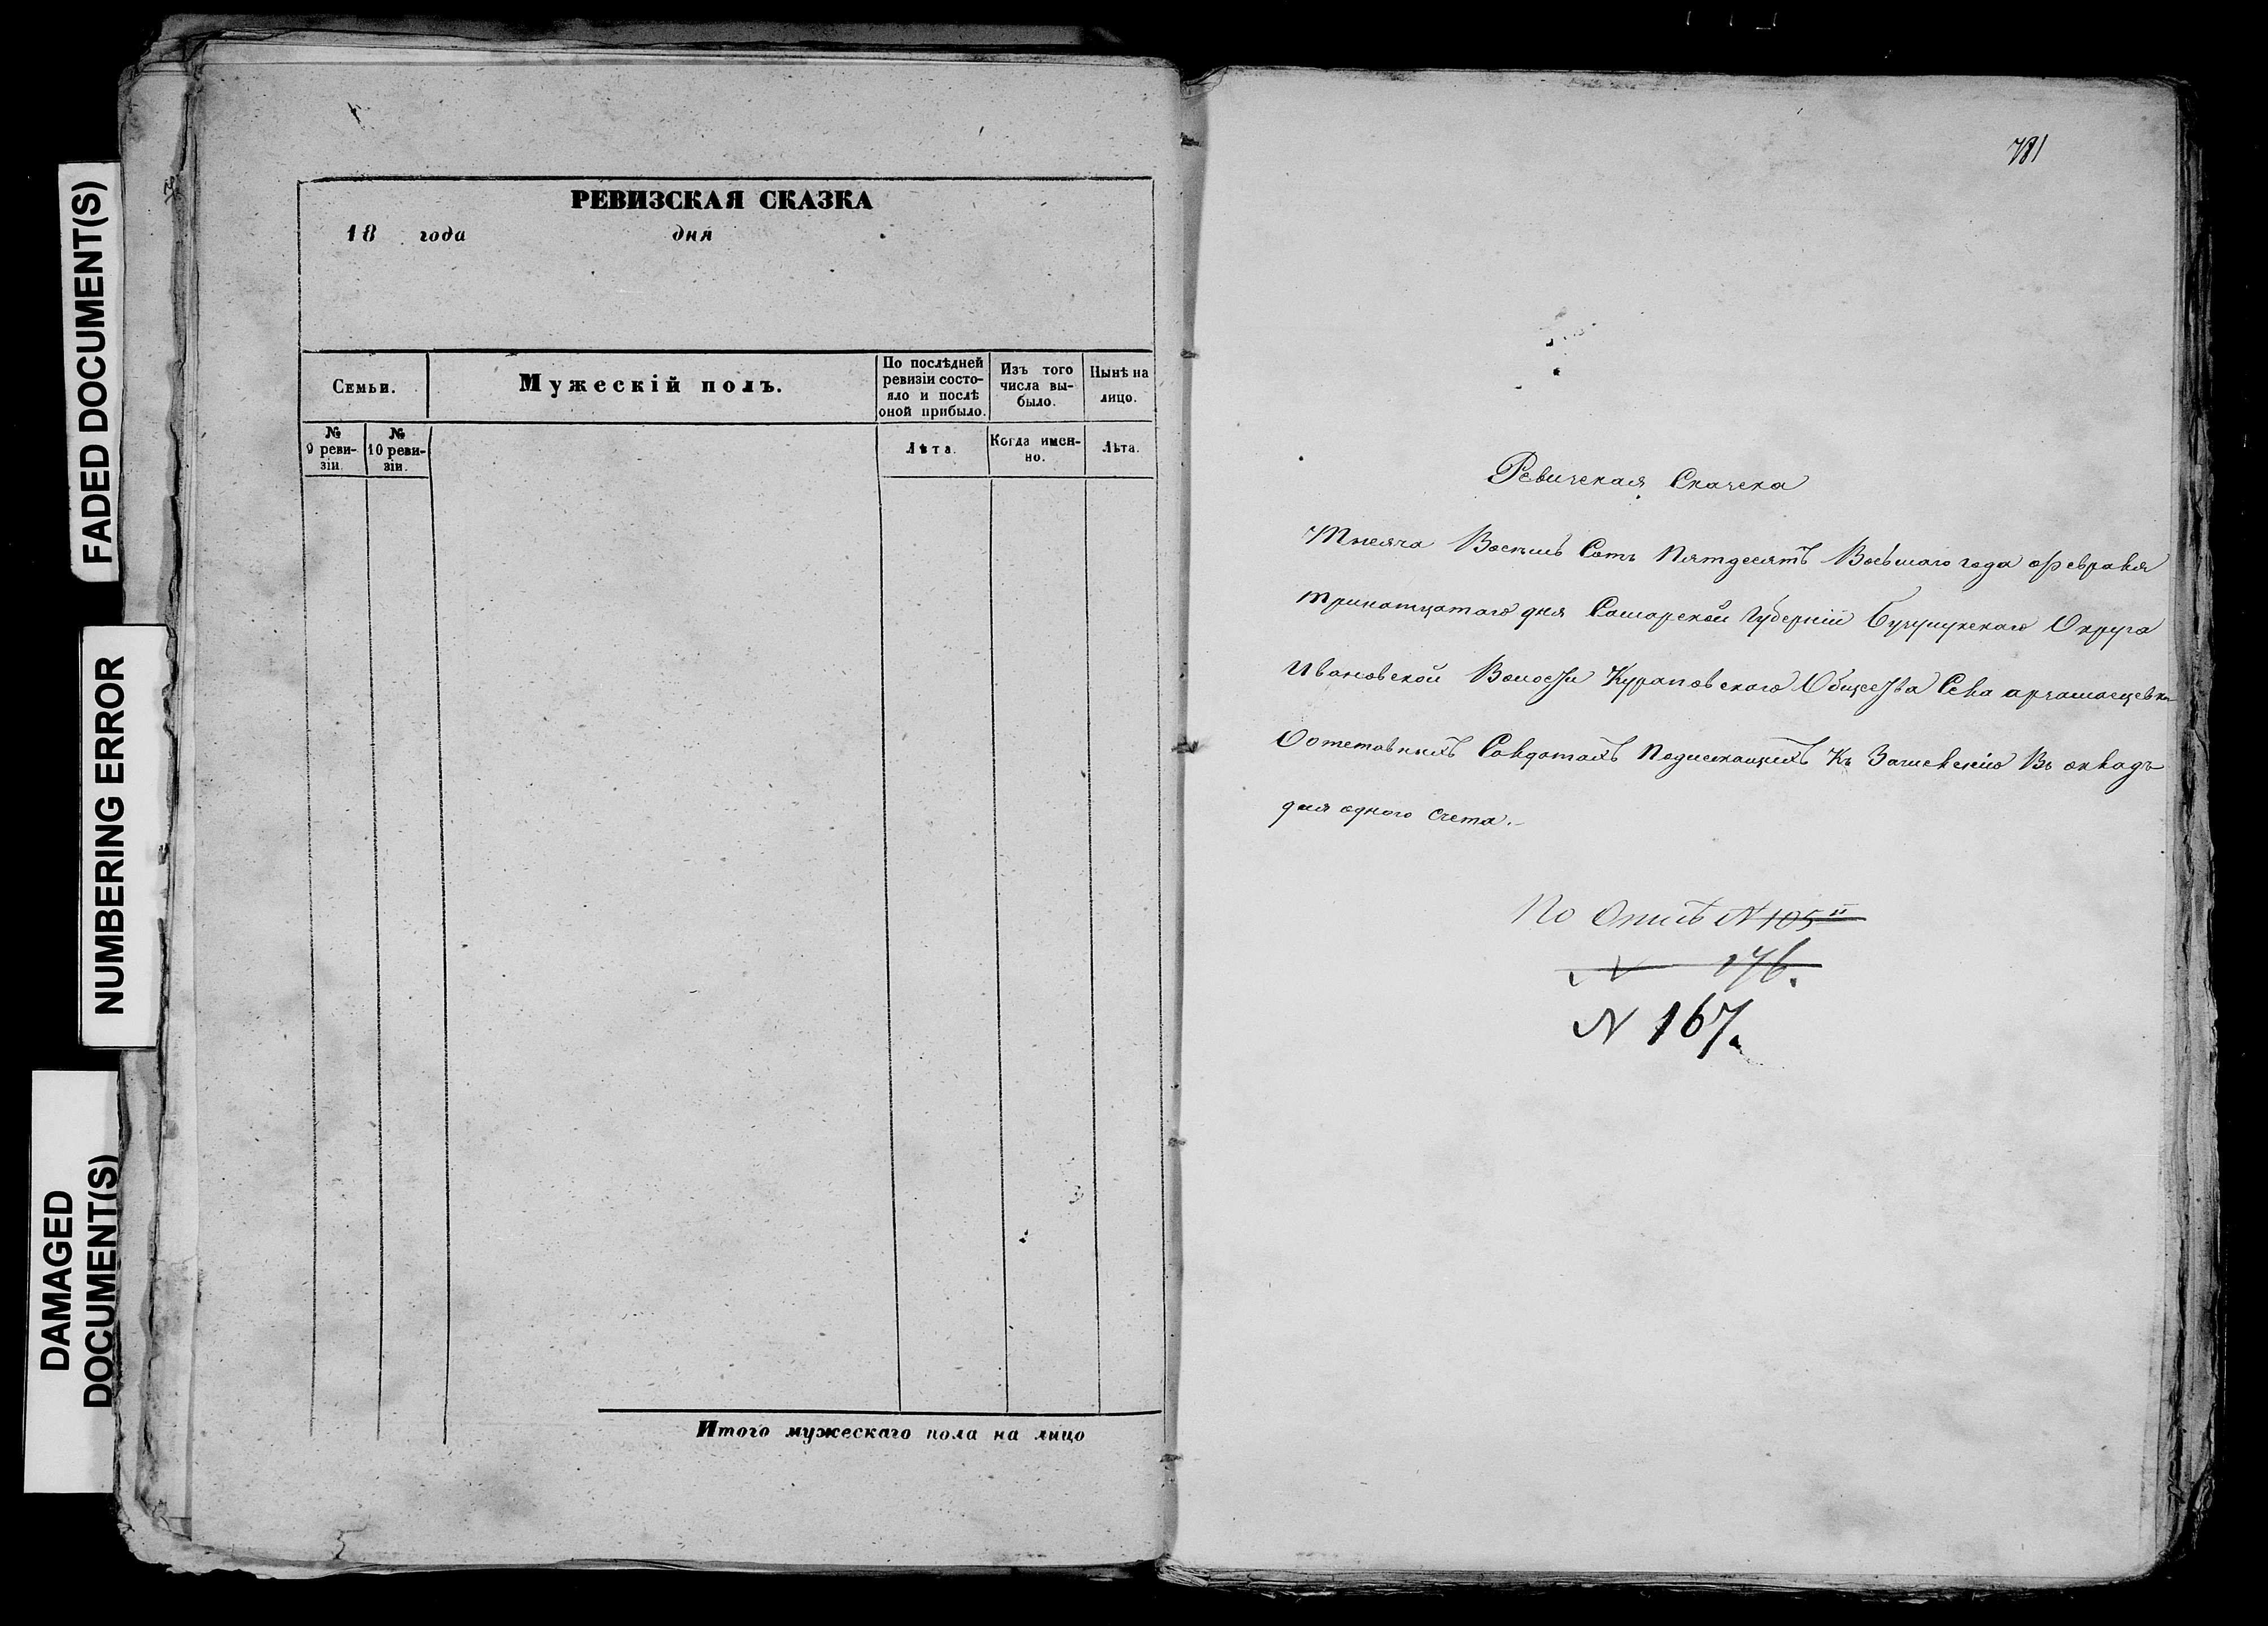 FADED DOCUMENT(S)
NUMBERING ERROR
DAMAGED
DOCUMENT(S)
РЕВИЗСКАЯ СКАЗКА
18 года дня
Семьи.
Мужескій полъ.
По послѣдней
ревизіи состо-
яло и послѣ
оной прибыло.
Изъ того
числа вы-
было.
Нынѣ на
лицо.
№
9 реви-
зіи.
№
10 реви-
зіи.
Лѣта.
Когда имен-
но.
Лѣта.
Итого мужескаго пола на лицо
781
Ревическая Скаска
Тысяча Восемь Сотъ Пятдесятъ Восьмаго года февраля
тринатцатаго дня Самарской Губерніи Бузулукскаго Округа
Ивановской Волости Курaповскаго Общества Села
Оотставныхъ Салдатахъ Подлежащихъ Къ Въ окладъ
для одного счета.
По Описѣ N 105
N 176.
N 167.